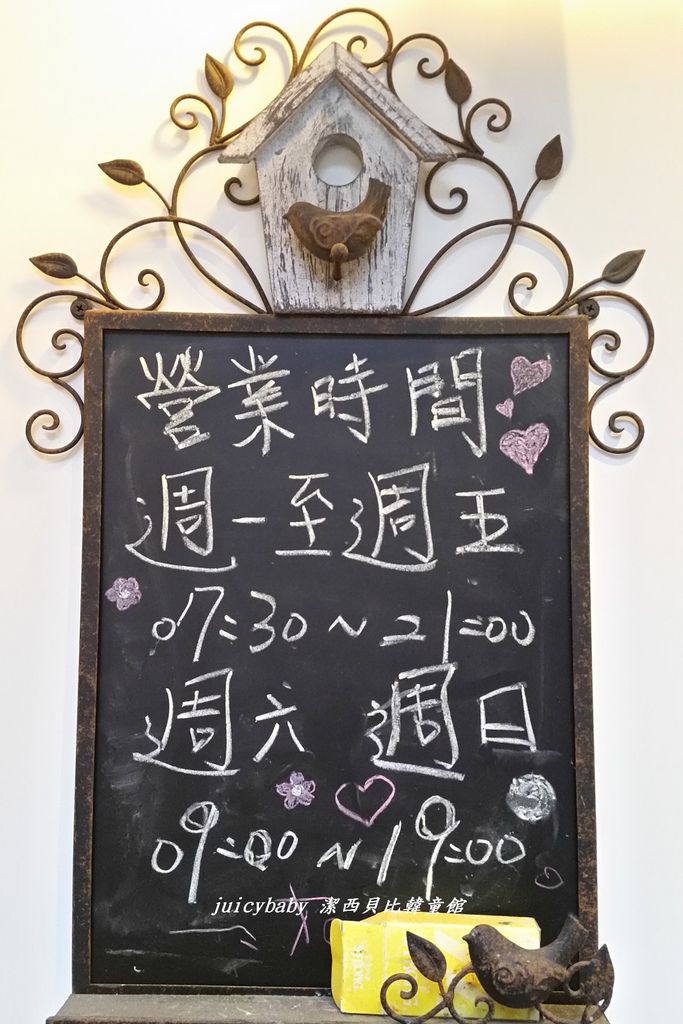 營業時間
週一至週五
07:30~21:00
週六 週日
09:00~19:00
juicybaby 潔西貝比韓童館
STRONG